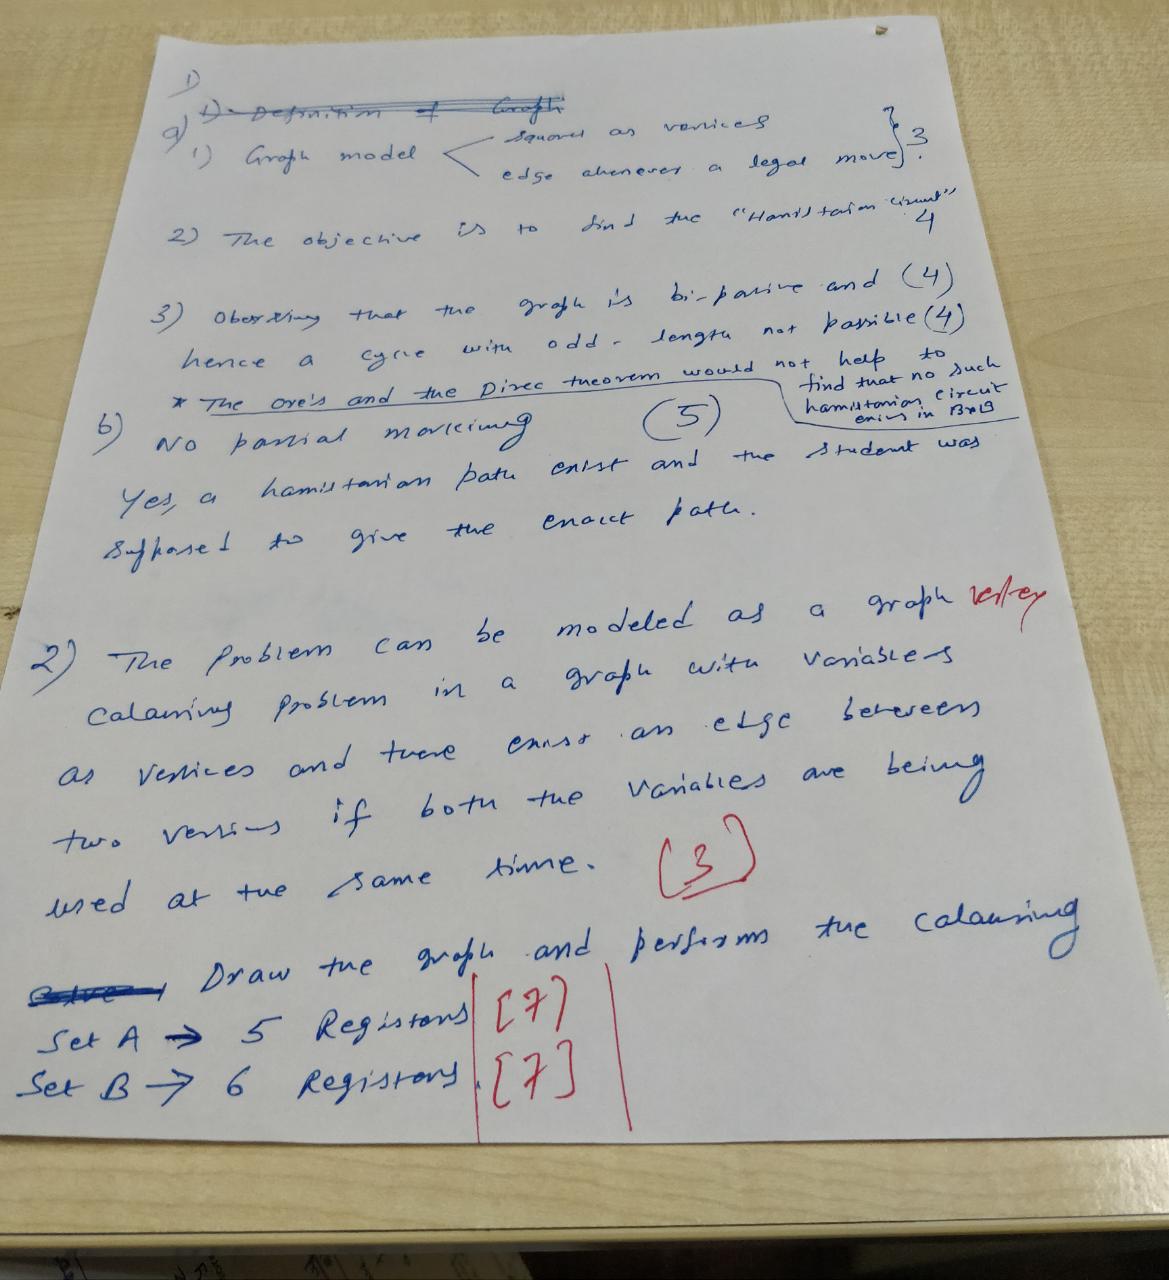 1)
1) Definition of Graph
a) 1) Graph model squares as vertices
edge whenever a legal move. } 3
2) The objective is to find the "Hamiltonian circuit" 4
3) Observing that the graph is bi-partite and (4)
hence a cycle with odd-length not possible (4)
* The ore's and the Direc theorem would not help to
find that no such
hamiltonian circuit
exists in
b) No partial marking (5)
Yes, a hamiltonian path exist and the student was
supposed to give the exact path.
2) The problem can be modeled as a graph vertex
calouring problem in a graph with variables
as vertices and there exist an edge between
two vertices if both the variables are being
used at the same time. (3)
Draw the graph and perform the calouring
Set A → 5 Registors [7]
Set B → 6 Registors. [7]